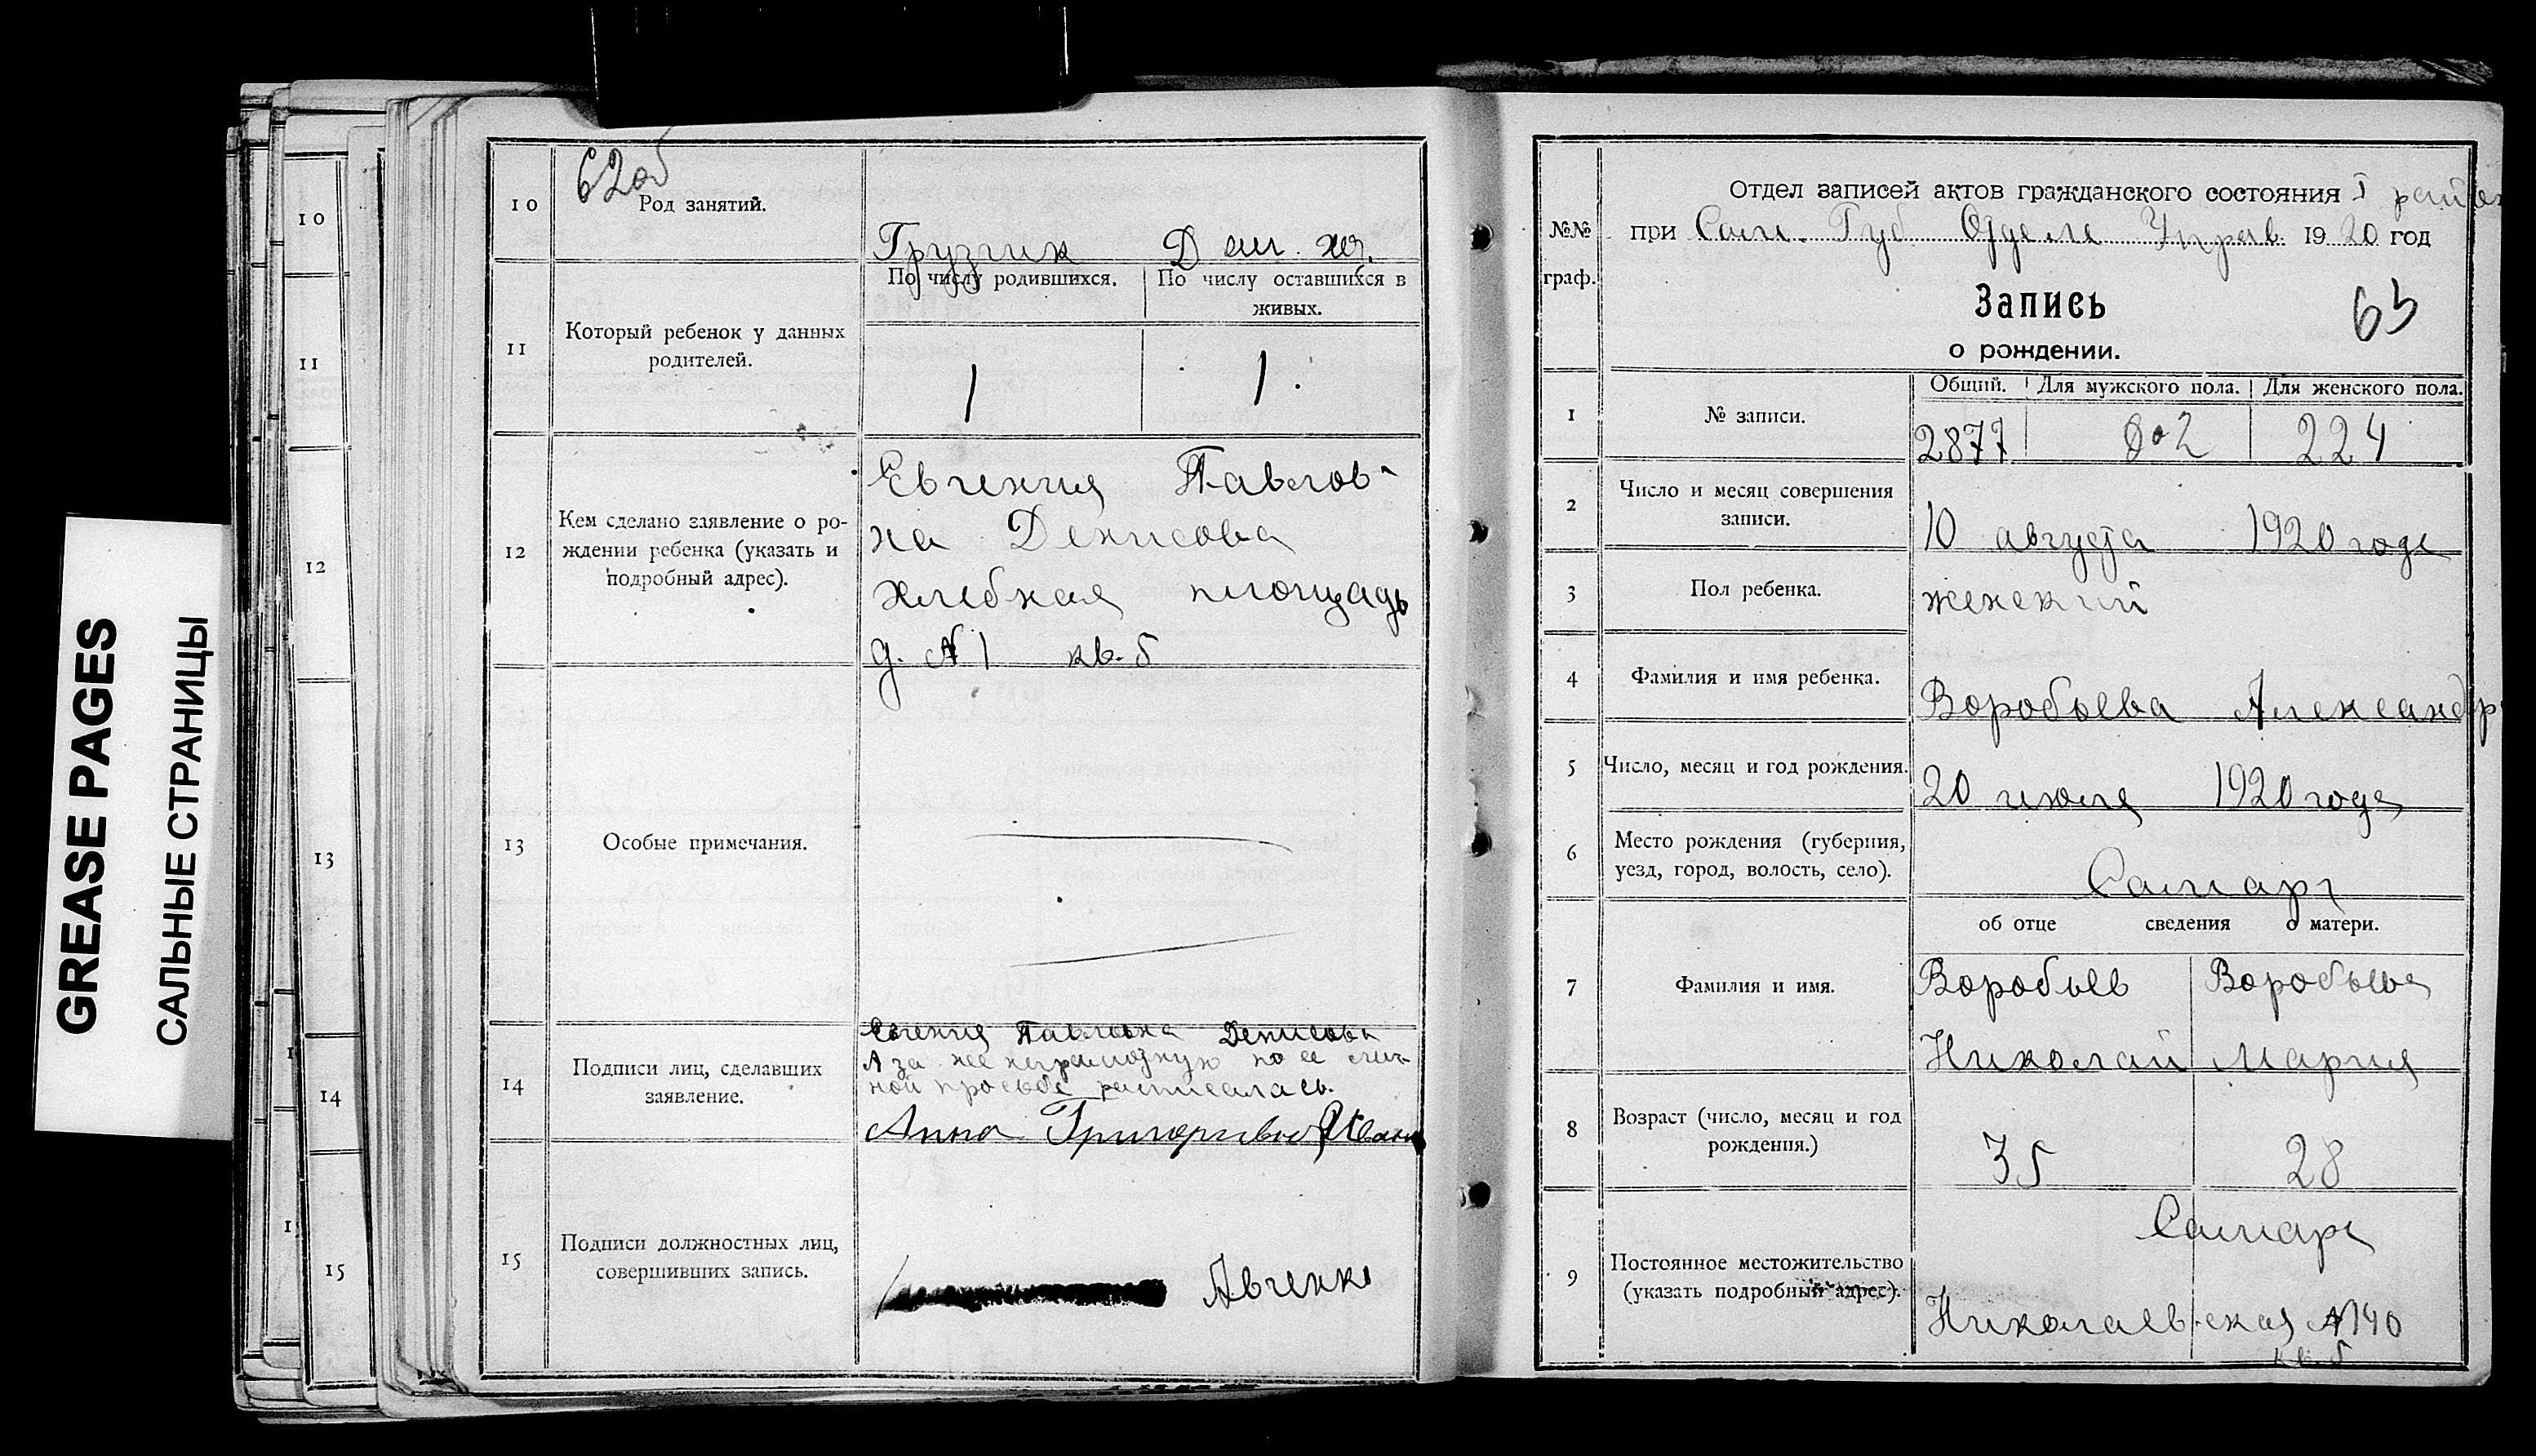 GREASE PAGES
САЛЬНЫЕ СТРАНИЦЫ
10
11
12
13
14
15
62об
10 Род занятий. Грузчик Дом. хоз.
11 Который ребенок у данных родителей.
По числу родившихся. По числу оставшихся в живых.
1 1.
12 Кем сделано заявление о ро-
ждении ребенка (указать и
подробный адрес).
Евгения Павлов-
на Денисова
Хлебная площадь
д. № 1 кв. 5
13 Особые примечания.
14 Подписи лиц, сделавших
заявление.
Евгения Павловна Денисова
А за нее неграмотную по ее лич-
ной просьбе расписалась.
Анна Григорьевна
15 Подписи должностных лиц,
совершивших запись.
№№
граф.
Отдел записей актов гражданского состояния I район
при Сам. Губ. Отделе Управ. 1920 год
Запись
63
о рождении.
Общий. Для мужского пола. Для женского пола.
1 № записи. 2877 224
2 Число и месяц совершения
записи.
10 августа 1920 года
3 Пол ребенка. женский
4 Фамилия и имя ребенка. Воробьева Александр
5 Число, месяц и год рождения. 20 июля 1920 года
6 Место рождения (губерния,
уезд, город, волость, село).
Самара
об отце сведения о матери.
7 Фамилия и имя. Воробьев Воробьева
Николай Мария
8 Возраст (число, месяц и год
рождения.)
35 28
9 Постоянное местожительство
(указать подробный адрес).
Самара
Николаевская № 140
кв. 5